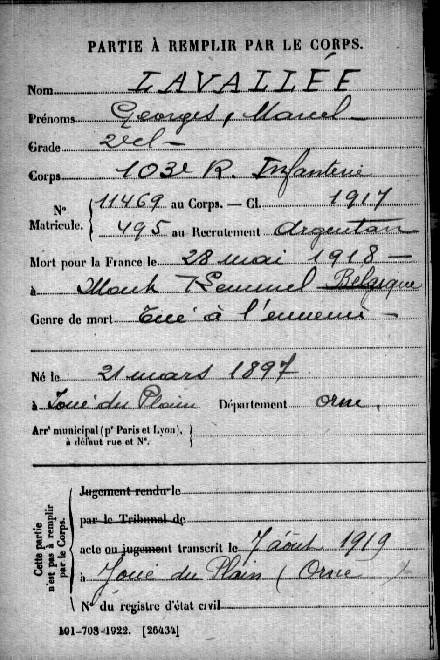 PARTIE À REMPLIR PAR LE CORPS.
Nom LAVALLÉE
Prénoms Georges, Marcel
Grade 2e cl
Corps 103e R. Infanterie
N° 11469 au Corps. — Cl. 1917
Matricule. 495 au Recrutement Argentan
Mort pour la France le 28 mai 1918
à Mont Kemmel Belgique
Genre de mort Tué à l'ennemi
Né le 21 mars 1897
à Joué du Plain Département Orne
Arrt municipal (pr Paris et Lyon),
à défaut rue et N°.
Cette partie
n'est pas à remplir
par le Corps.
Jugement rendu le
par le Tribunal de
acte ou jugement transcrit le 7 août 1919
à Joué du Plain (Orne
N° du registre d'état civil
101-708-1922. [26434]